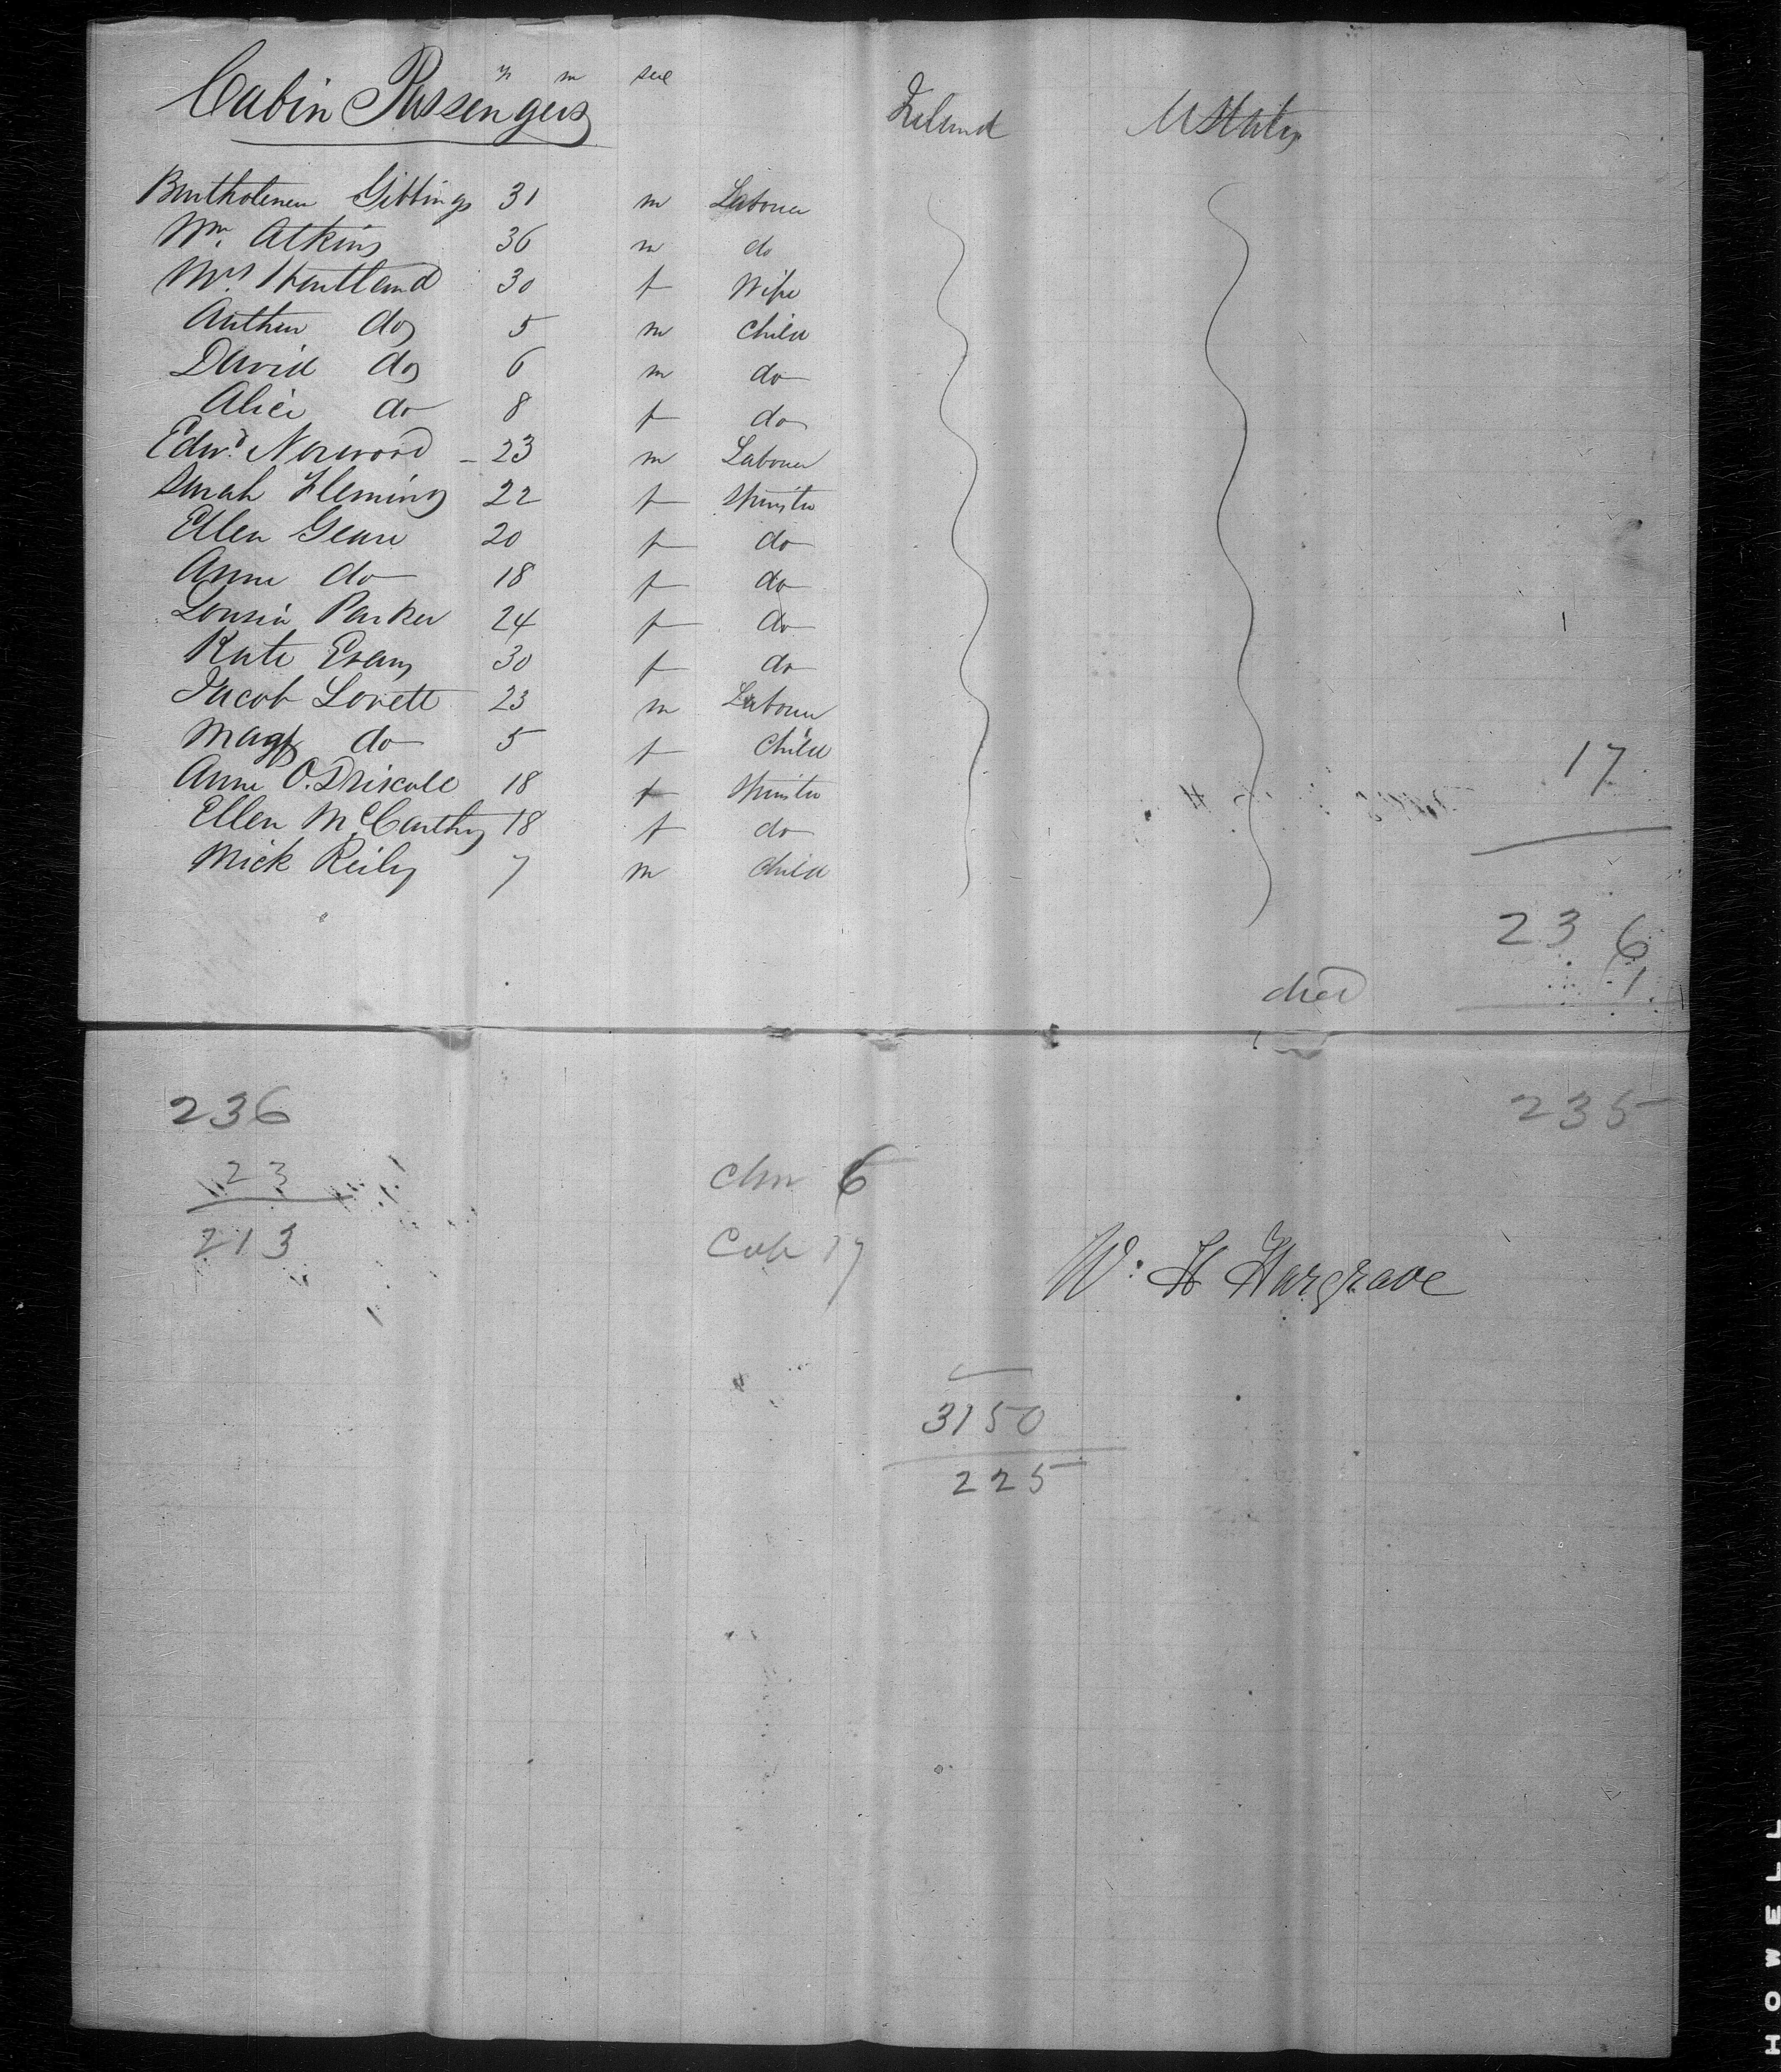 y m sex
Cabin Passengers Ireland UStates
Bartholemew Gibbings 31 m Labourer
Wm. Atkins 36 m do
Mrs. 30 f Wife
Arthur do 5 m Child
David do 6 m do
Alice do 8 f do
Edwd. Norwood 23 m Labourer
Sarah Fleming 22 f Spinster
Ellen Geare 20 f do
Anne do 18 f do
Lousia Parker 24 f do
Kate Evans 30 f do
Jacob Lovett 23 m Labourer
Magt do 5 f Child
Anne O.Driscole 18 f Spinster
Ellen McCarthy 18 f do
Mick Reily 7 m Child
17
236
died 1
236 235
23
213
chn 6
Cab 17
W. H Hargrave
3150
225
HOWELL